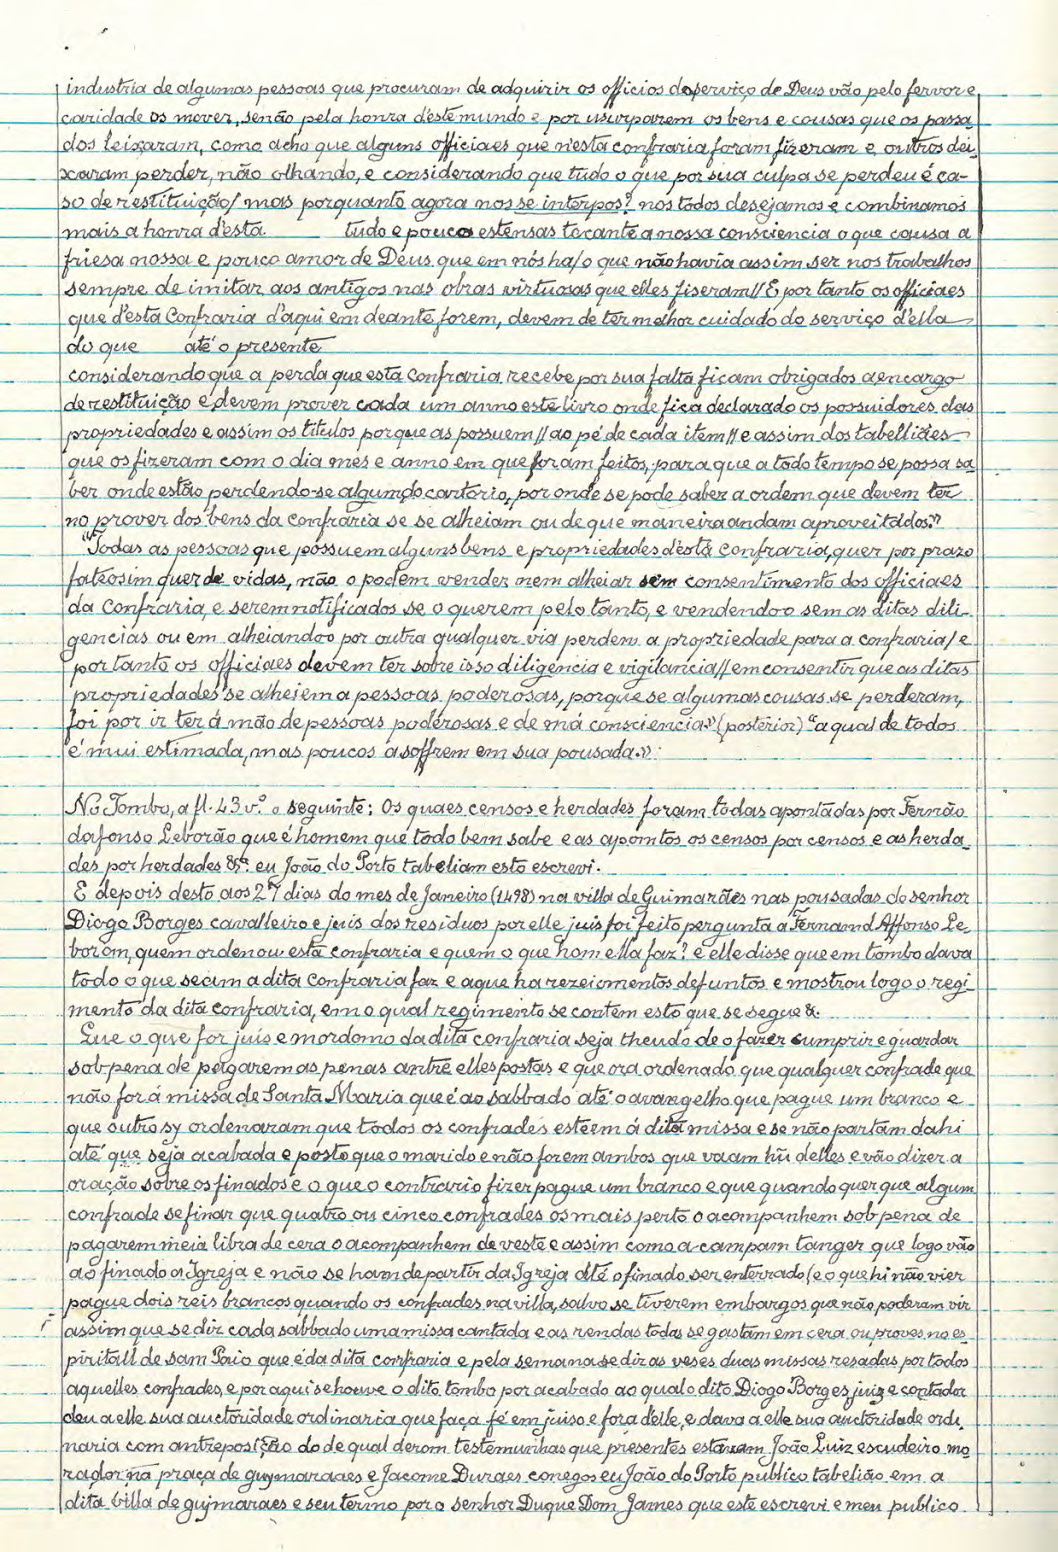 industria de algumas pessoas que procuram de adquirir os officios do serviço de Deus vão pelo fervor e
caridade os mover, senão pela honra d'este mundo e por usurparem os bens e cousas que os passa
dos leixaram, como acho que alguns officiaes que n'esta confraria foram fizeram e outros dei-
xaram perder, não olhando, e considerando que tudo o que por sua culpa se perdeu é ca-
so de restituição/ mas porquanto agora nos se interpos? nos todos desejamos e combinamos
mais a honra d'esta tudo e pouco estensas tocante a nossa consciencia o que causa a
friesa nossa e pouco amor de Deus que em nós ha/o que não havia assim ser nos trabalhos
sempre de imitar aos antigos nas obras virtuosas que elles fiseram// E por tanto os officiaes
que d'esta Confraria d'aqui em deante forem, devem de ter melhor cuidado do serviço d'ella
do que até o presente
considerando que a perda que esta Confraria recebe por sua falta ficam obrigados a encargo
de restituição e devem prover cada um anno este livro onde fica declarado os possuidores das
propriedades e assim os titulos porque as possuem// ao pé de cada item// e assim dos tabelliães
que os fizeram com o dia mes e anno em que foram feitos, para que a todo tempo se possa sa
ber onde estão perdendo-se algum do cartorio, por onde se pode saber a ordem que devem ter
no prover dos bens da Confraria se se alheiam ou de que maneira andam aproveitados."
"Todas as pessoas que possuem alguns bens e propriedades d'esta Confraria, quer por prazo
fateosim quer de vidas, não o podem vender nem alheiar sem consentimento dos officiaes
da Confraria, e serem notificados se o querem pelo tanto, e vendendo-o sem as ditas dili-
gencias ou em alheiando-o por outra qualquer via perdem a propriedade para a confraria/ e
por tanto os officiaes devem ter sobre isso diligencia e vigilancia// em consentir que as ditas
propriedades se alheiem a pessoas, poderosas, porque se algumas cousas se perderam,
foi por ir ter á mão de pessoas poderosas e de má consciencia" (posterior) "a qual de todos
é mui estimada, mas poucos a soffrem em sua pousada.":
No Tombo, a fl. 43 v.º o seguinte: Os quaes censos e herdades foram todas apontadas por Fernão
dafonso Leborão que é homem que todo bem sabe e as apontos os censos por censos e as herda
des por herdades &ª. eu João do Porto tabeliam esto escrevi.
E depois desto aos 27 dias do mes de Janeiro (1498) na villa de Guimarães nas pousadas do senhor
Diogo Borges cavalleiro e juis dos residuos por elle juis foi feito pergunta a Fernamd Affonso Le-
boram, quem ordenou esta confraria e quem o que hom ella faz? e elle disse que em tombo dava
todo o que secam a dita Confraria faz e aque ha rezeicmentos defuntos e mostrou logo o regi-
mento da dita confraria, em o qual regimento se contem esto que se segue &.
Que o que for juis e mordomo da dita confraria seja theudo de o fazer cumprir e guardar
sob pena de pagarem as penas antre elles postas e que ora ordenado que qualquer confrade que
não for á missa de Santa Maria que é ao sabbado até o avangelho que pague um branco e
que outro sy ordenaram que todos os confrades esteem á dita missa e se não partam dahi
até que seja acabada e posto que o marido e não forem ambos que vaam hũ delles e vão dizer a
oração sobre os finados e o que o contrario fizer pague um branco e que quando quer que algum
confrade se finar que quatro ou cinco confrades os mais perto o acompanhem sob pena de
pagarem meia libra de cera o acompanhem de veste e assim como a campam tanger que logo vão
ao finado a Igreja e não se ham de partir da Igreja até o finado ser enterrado (e o que hi não vier
pague dois reis brancos quando os confrades na villa, salvo se tiverem embargos que não poderam vir
assim que se diz cada sabbado uma missa cantada e as rendas todas se gastam em cera ou proves no es-
piritall de sam Paio que é da dita confraria e pela semana se diz as veses duas missas resadas por todos
aquelles confrades, e por aqui se houve o dito tombo por acabado ao qual o dito Diogo Borges juiz e contador
deu a elle sua auctoridade ordinaria que faça fé em juiso e fora d'elle, e dava a elle sua auctoridade ordi-
naria com antreposição do de qual derom testemunhas que presentes estavam João Luiz escudeiro mo
rador na praça de guymaraaes e Jacome Duraes conegos eu João do Porto publico tabelião em a
dita billa de guimaraaes e seu termo por o senhor Duque Dom James que este escrevi e meu publico